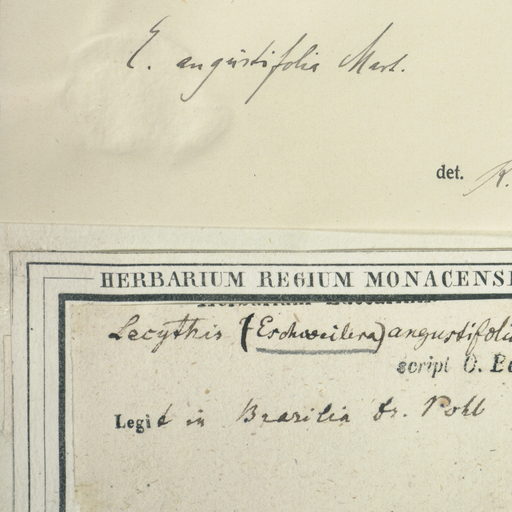 E. angustifolia Mart.
det.
HERBARIUM REGIUM MONACENS
Lecythis (Eschweilera) angustifolia
script O. Be
Legit in Brasilia Dr. Pohl